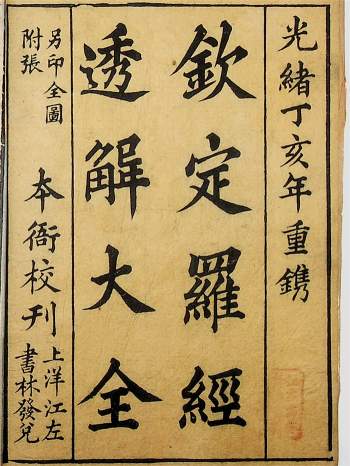 光緒丁亥年重鐫
欽定羅經
透解大全
另印全圖
附張
本衙校刊
上洋江左
書林發兌